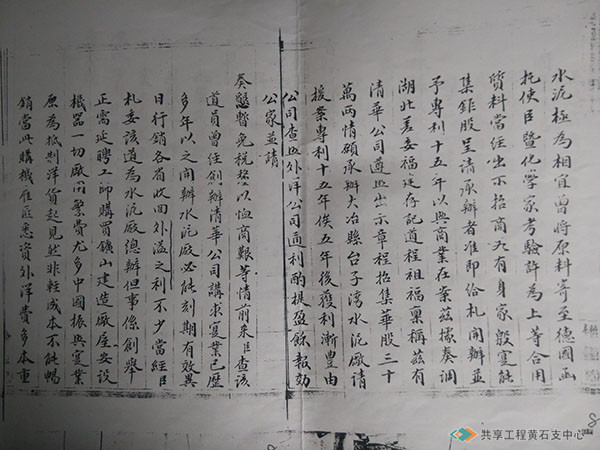 水泥極為相宜曾將原料寄至德國函
托使臣暨化學家考驗許為上等合用
質料當經出示招商凡有身家殷實能
集鉅股呈請承辦者准即給札開辦並
予專利十五年以興商業在案茲據奏調
湖北差委福建存記道程祖福稟稱茲有
清華公司遵照出示章程招集華股三十
萬兩情願承辦大冶縣台子灣水泥廠請
援案專利十五年俟五年後獲利漸豊由
公司查照外洋公司通利酌提盈餘報効
公家並請
奏懇暫免稅釐以恤商艱等情前來臣查該
道員曾經創辦清華公司講求實業已歷
多年以之開辦水泥廠必能刻期有效異
日行銷各省收回外溢之利不少當經臣
札委該道為水泥廠總辦但事係創舉
正需延聘工師購買鑛山建造廠座安設
機器一切廠用繁費尤多中國振興實業
原為抵制洋貨起見然非輕成本不能暢
銷當此購機雇匠悉資外洋費多本重
共享工程黄石支中心